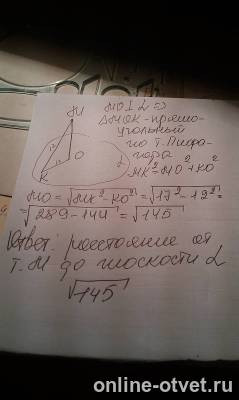 M
MO⊥α ⇒
ΔMOK - прямо-
угольный
по т. Пифа-
гора
MK²=MO²+KO²
17
O
12
K
α
MO = √MK²-KO² = √17²-12² =
= √289-144 = √145
Ответ: расстояние от
т. M до плоскости α
√145
online-otvet.ru